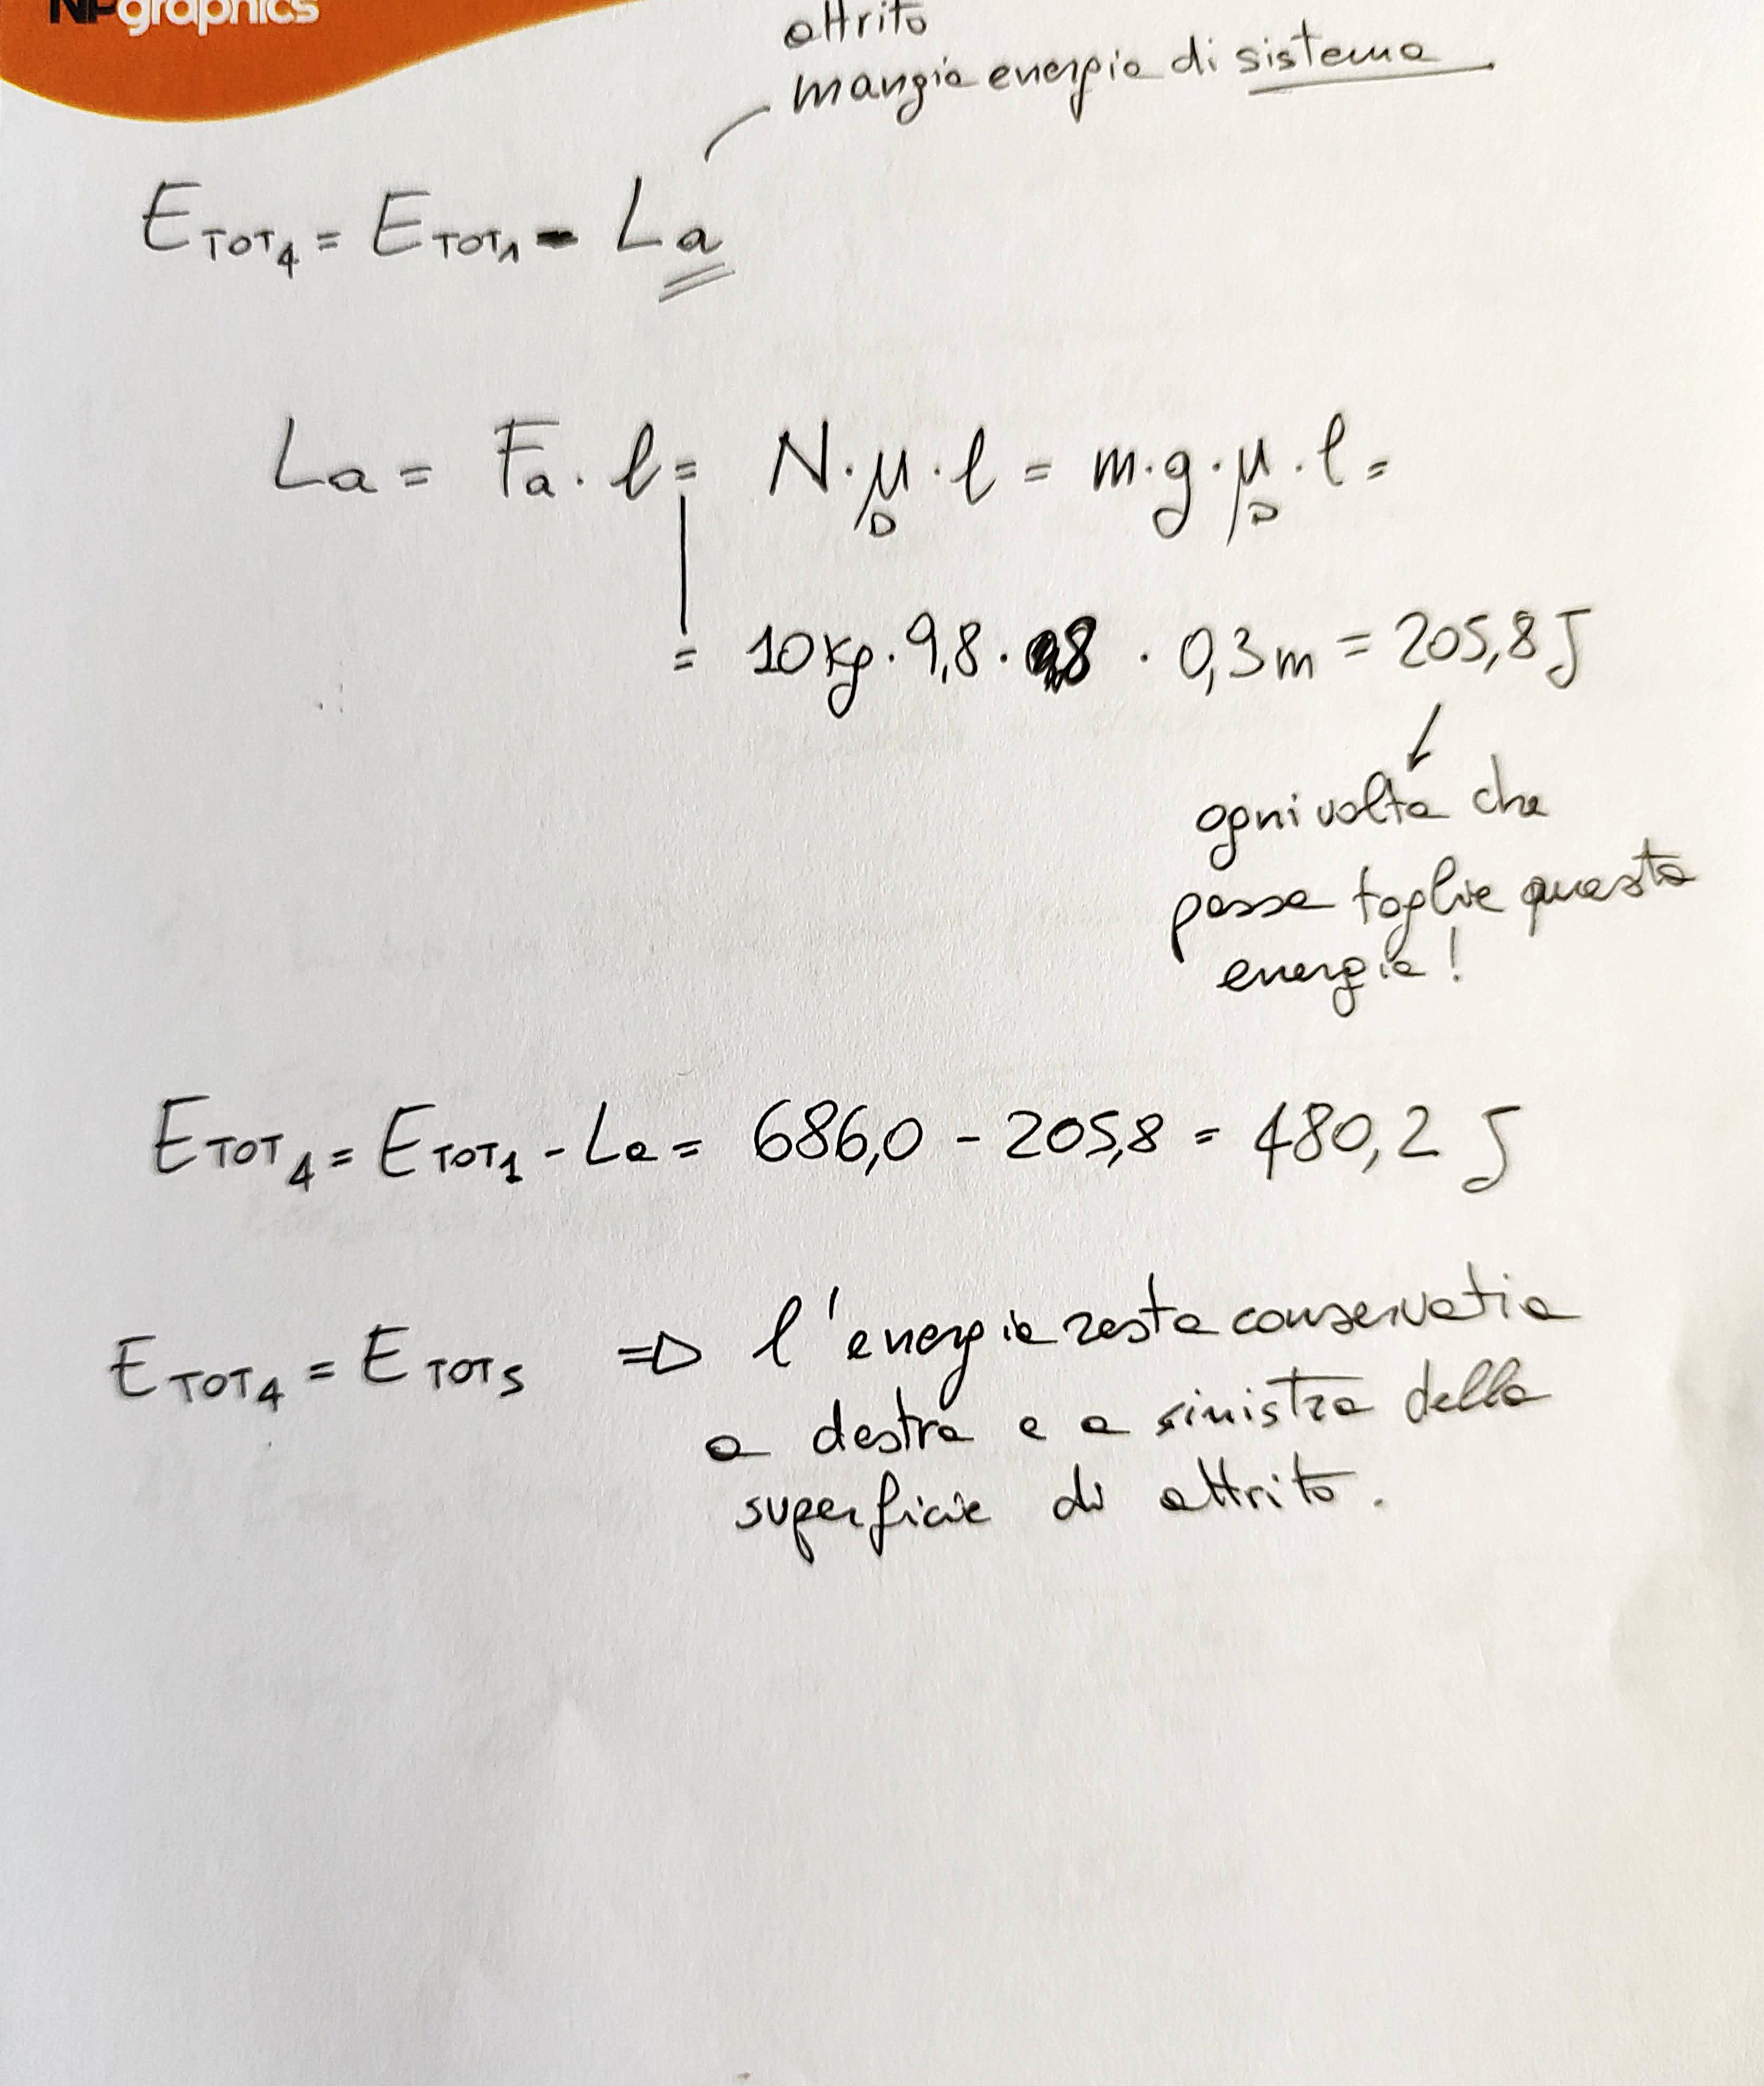 NPgraphics
attrito
mangia energia di sistema
E TOT4 = E TOT1 - La
La = Fa · l = N · μD · l = m · g · μD · l =
= 10 kg · 9,8 · 0,8 · 0,3 m = 205,8 J
ogni volta che
passa toglie questa
energia!
E TOT4 = E TOT1 - La = 686,0 - 205,8 = 480,2 J
E TOT4 = E TOT5 ⇒ l'energia resta conservatia
a destra e a sinistra della
superficie di attrito.